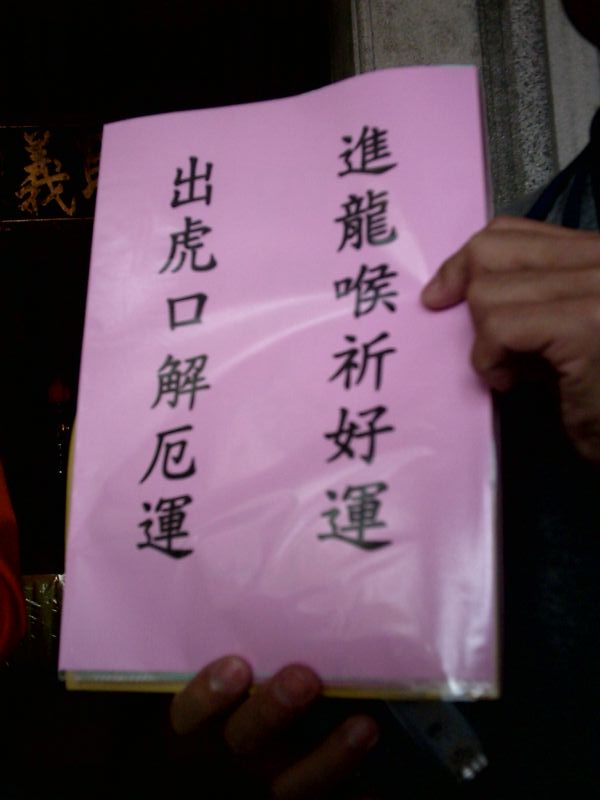 進龍喉祈好運
出虎口解厄運
義